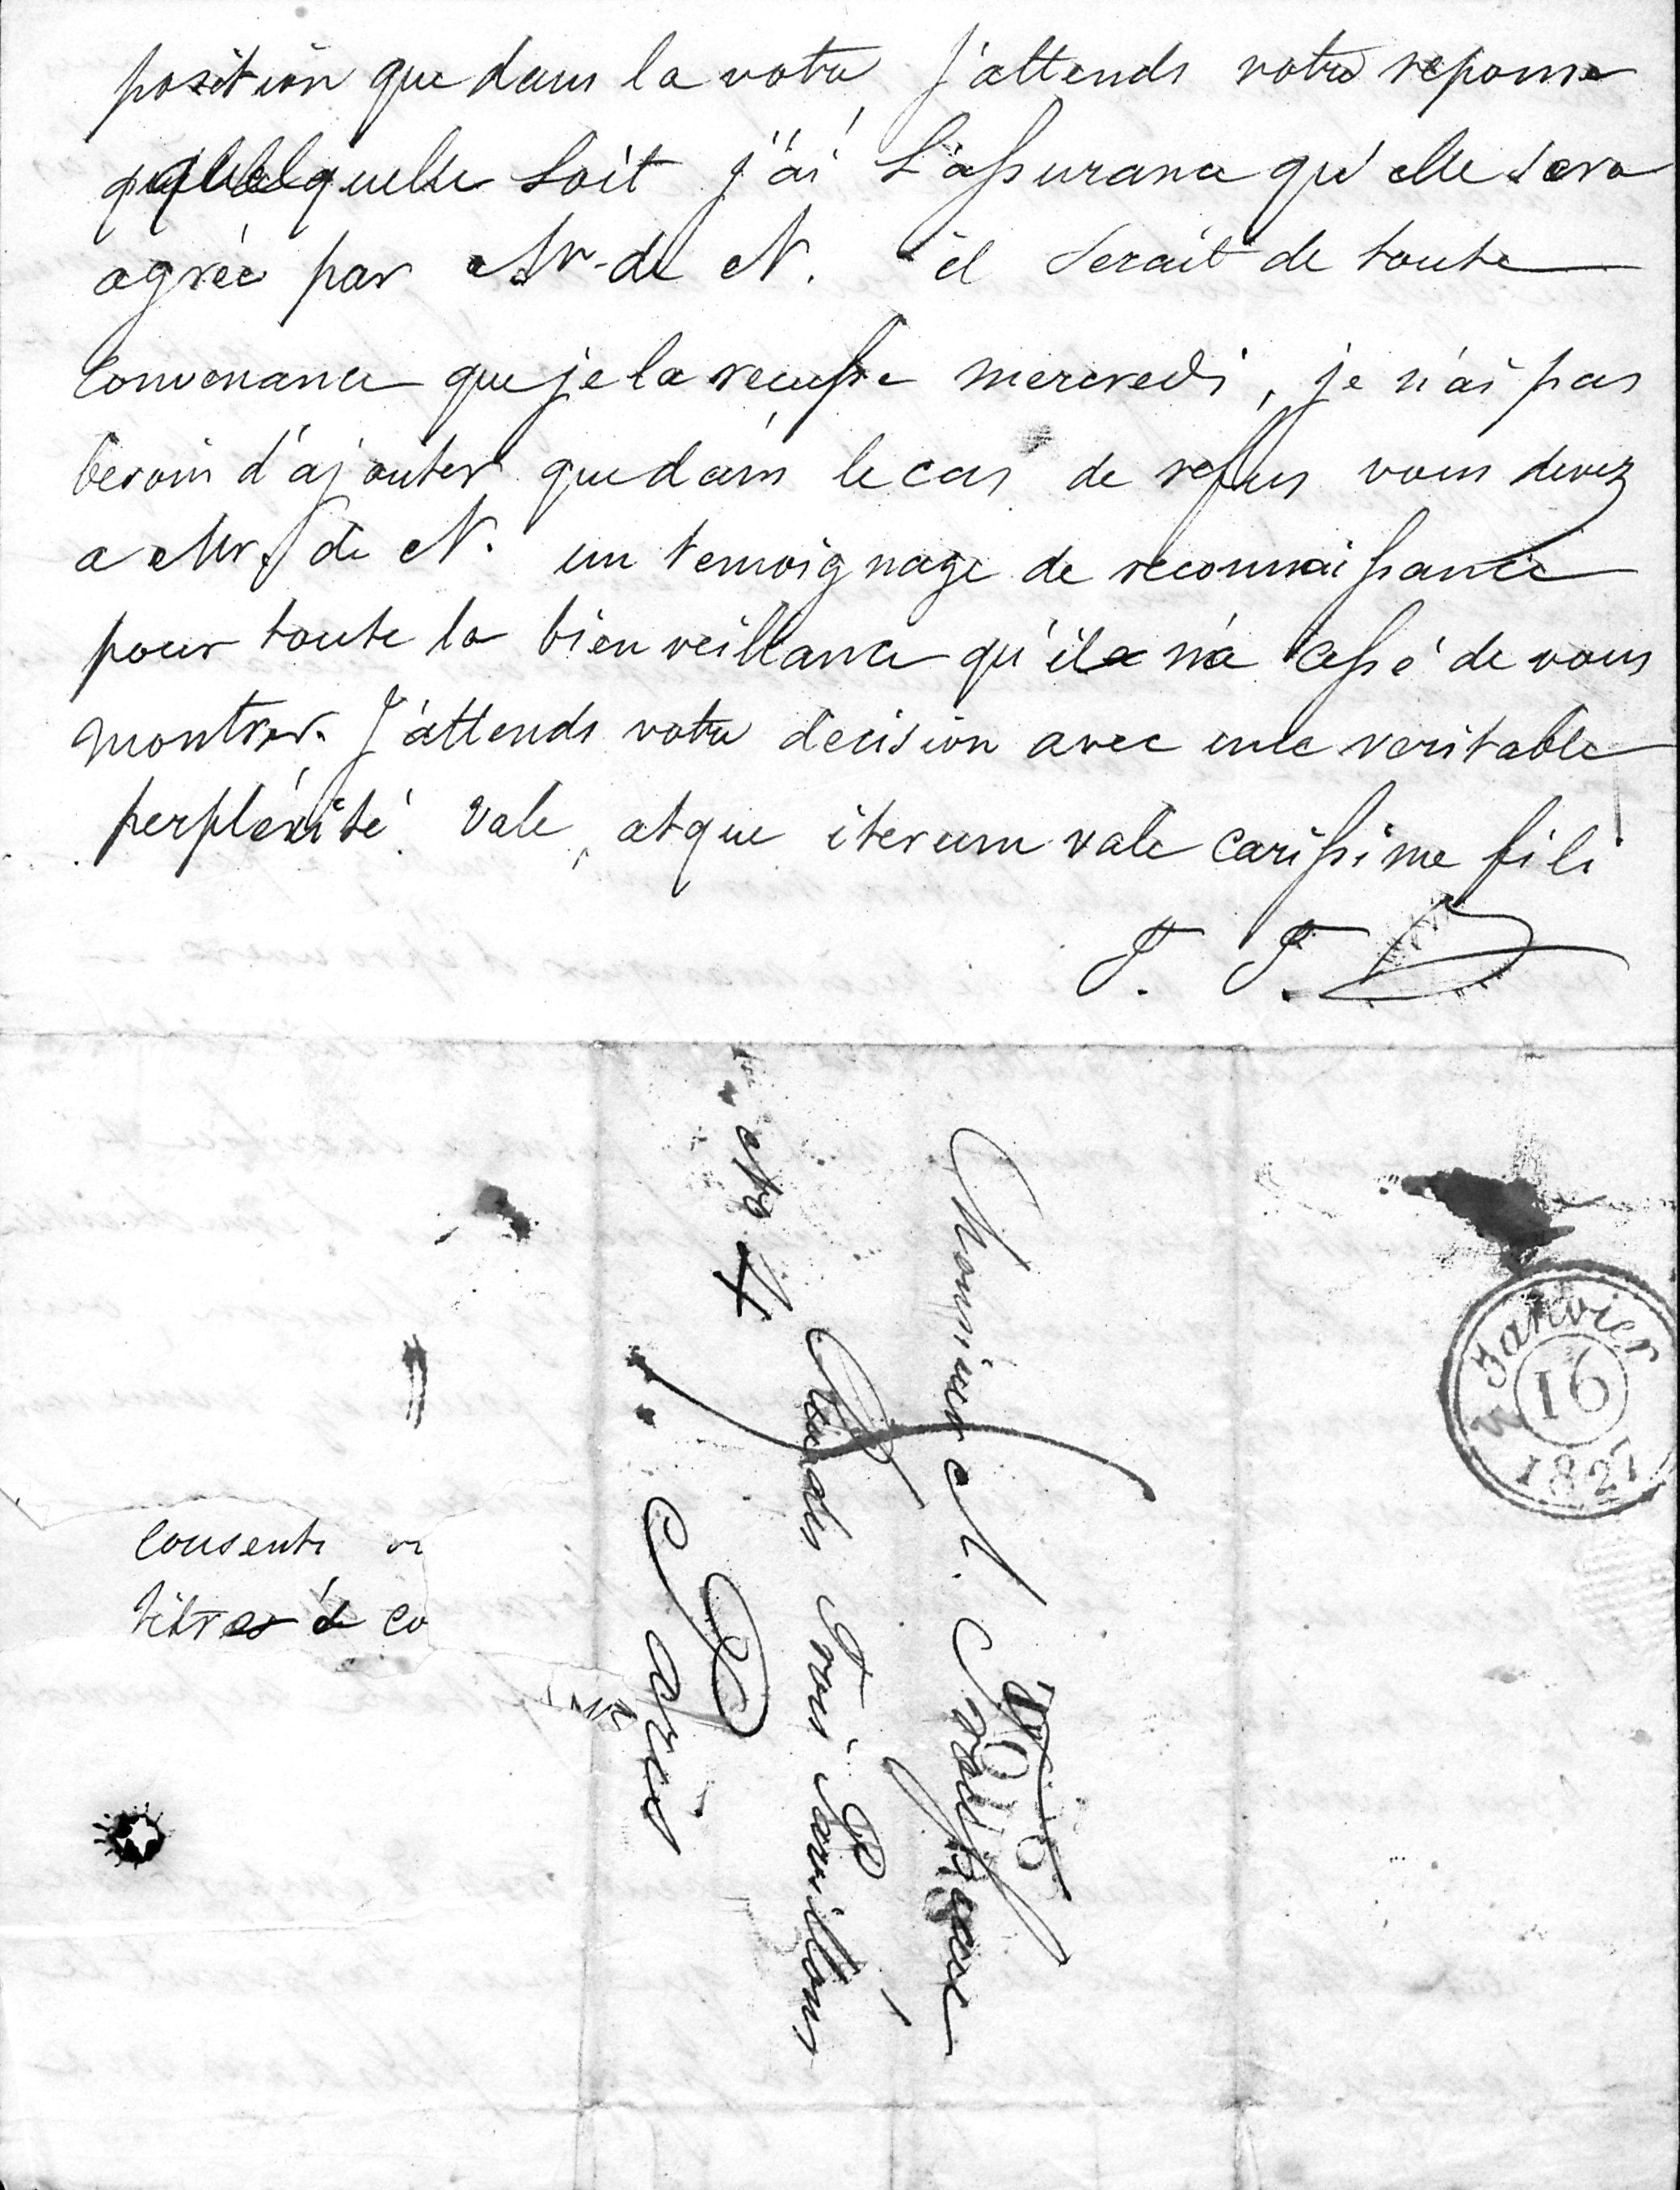 position que dans la votre, j'attends votre reponse
quelquelle soit j'ai l'assurance qu'elle sera
agréé par Mr. de N. il serait de toute
convenance que je la reçusse mercredi, je n'ai pas
besoin d'ajouter que dans le cas de refus vous devez
a Mr. de N. un temoignage de reconnaissance
pour toute la bienveillance qu'il n'a cessé de vous
montrer. J'attends votre decision avec une veritable
perpléxité. Vale, atque iterum vale carissime fili
F. F.
Janvier
16
1827
Monsieur A.
Rue des Trois Pavillons
No 4
Paris
Consenti
titres de co